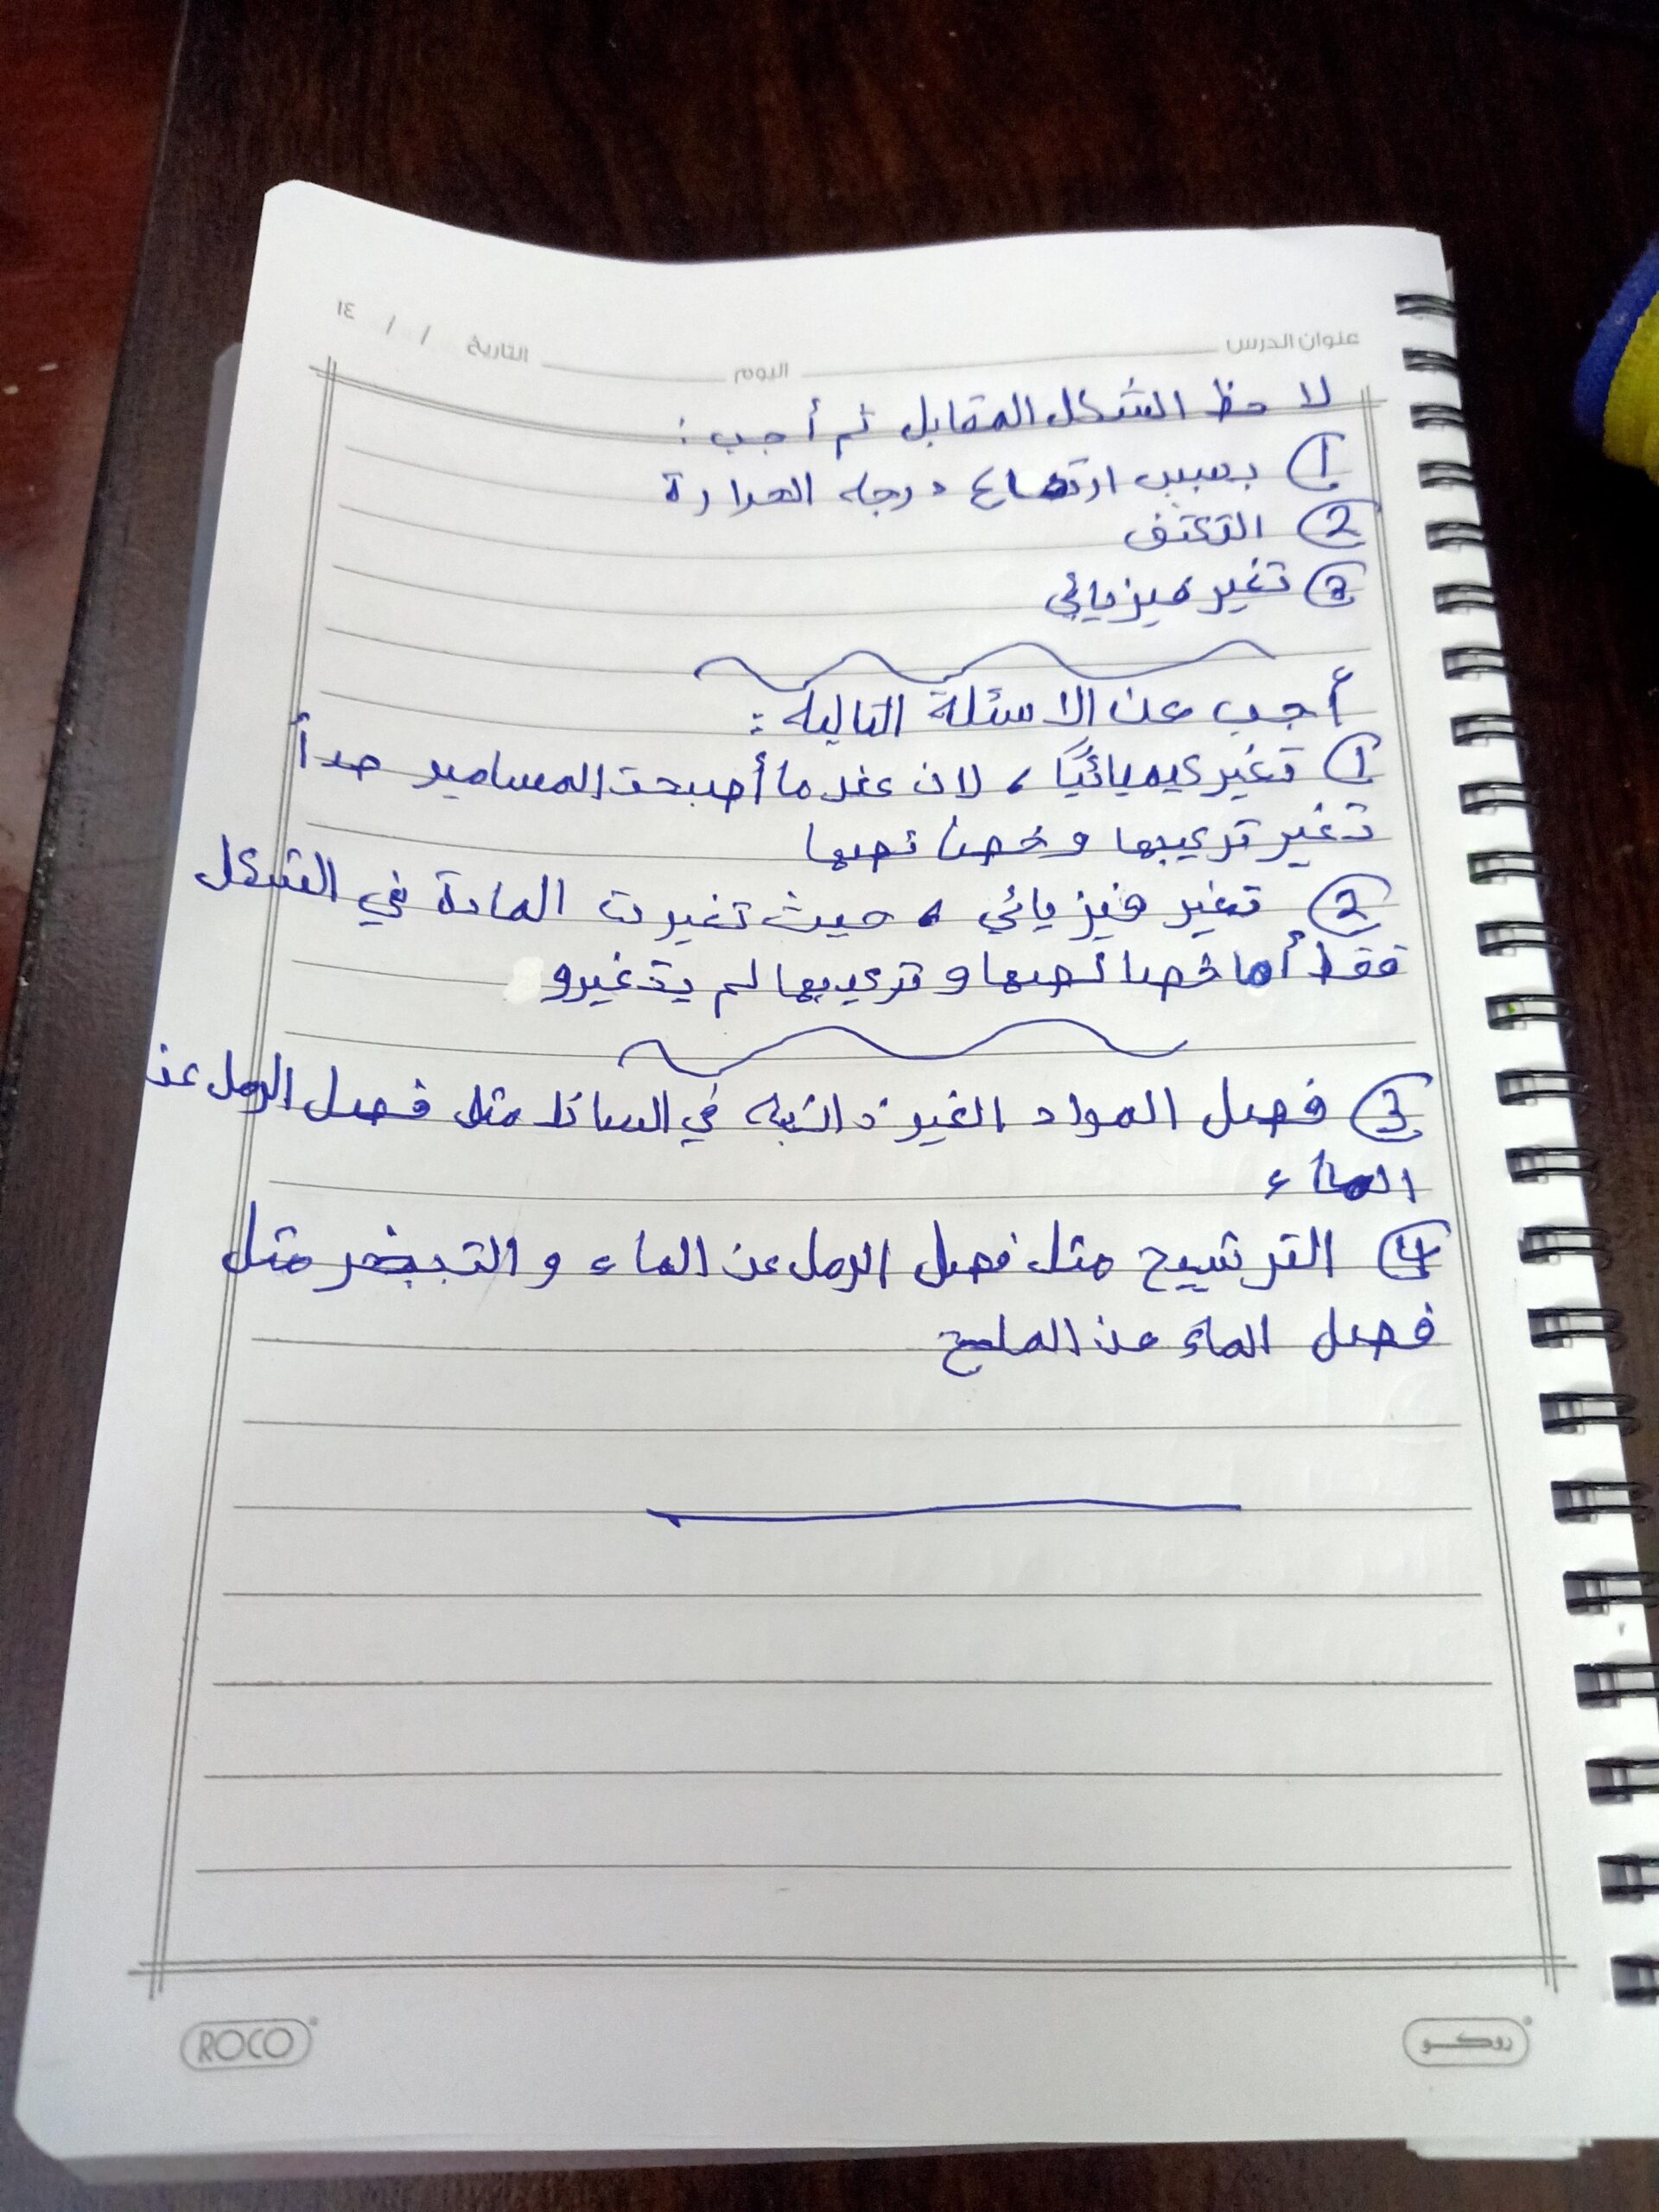 عنوان الدرس اليوم التاريخ / / ١٤
لاحظ الشكل المقابل ثم أجب :
① بسبب ارتفاع درجه الحرارة
② التكثف
③ تغير فيزيائي
أجب عن الاسئلة التاليه :
① تغير كيميائيًا ، لان عندما أصبحت المسامير صدأ
تغير تركيبها وخصائصها
② تغير فيزيائي ، حيث تغيرت المادة في الشكل
فقط أما خصائصها وتركيبها لم يتغيرو
③ فصل المواد الغير ذائبه في السائل مثل فصل الرمل عن
الماء
④ الترشيح مثل فصل الرمل عن الماء و التبخر مثل
فصل الماء عن الملح
ROCO روكو